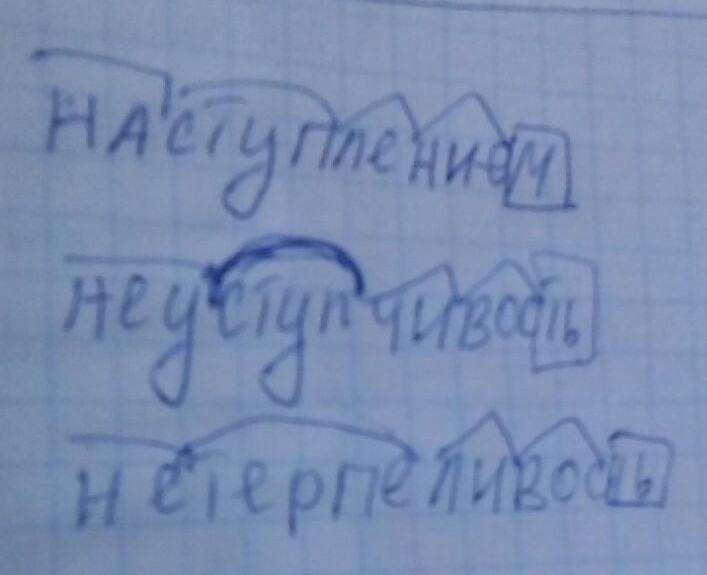 наступлением
неуступчивость
нетерпеливость